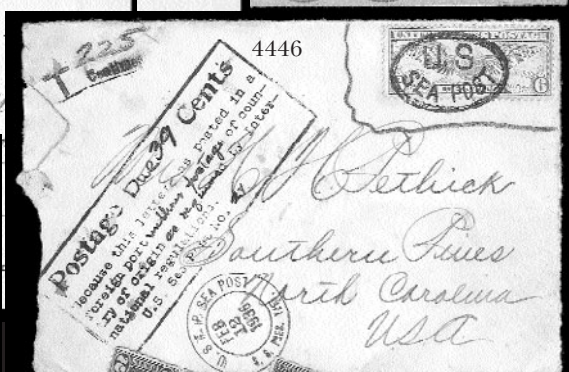 225
T
Centimes
4446
U.S.
SEA POST
6
Postage Due 39 Cents
Because this letter was posted in a
foreign port without postage of coun-
try of origin as required by inter-
national regulations.
U. S. Sea Post No.
Pethick
Southern Pines
North Carolina
USA
SEA POST
FEB
12
1936